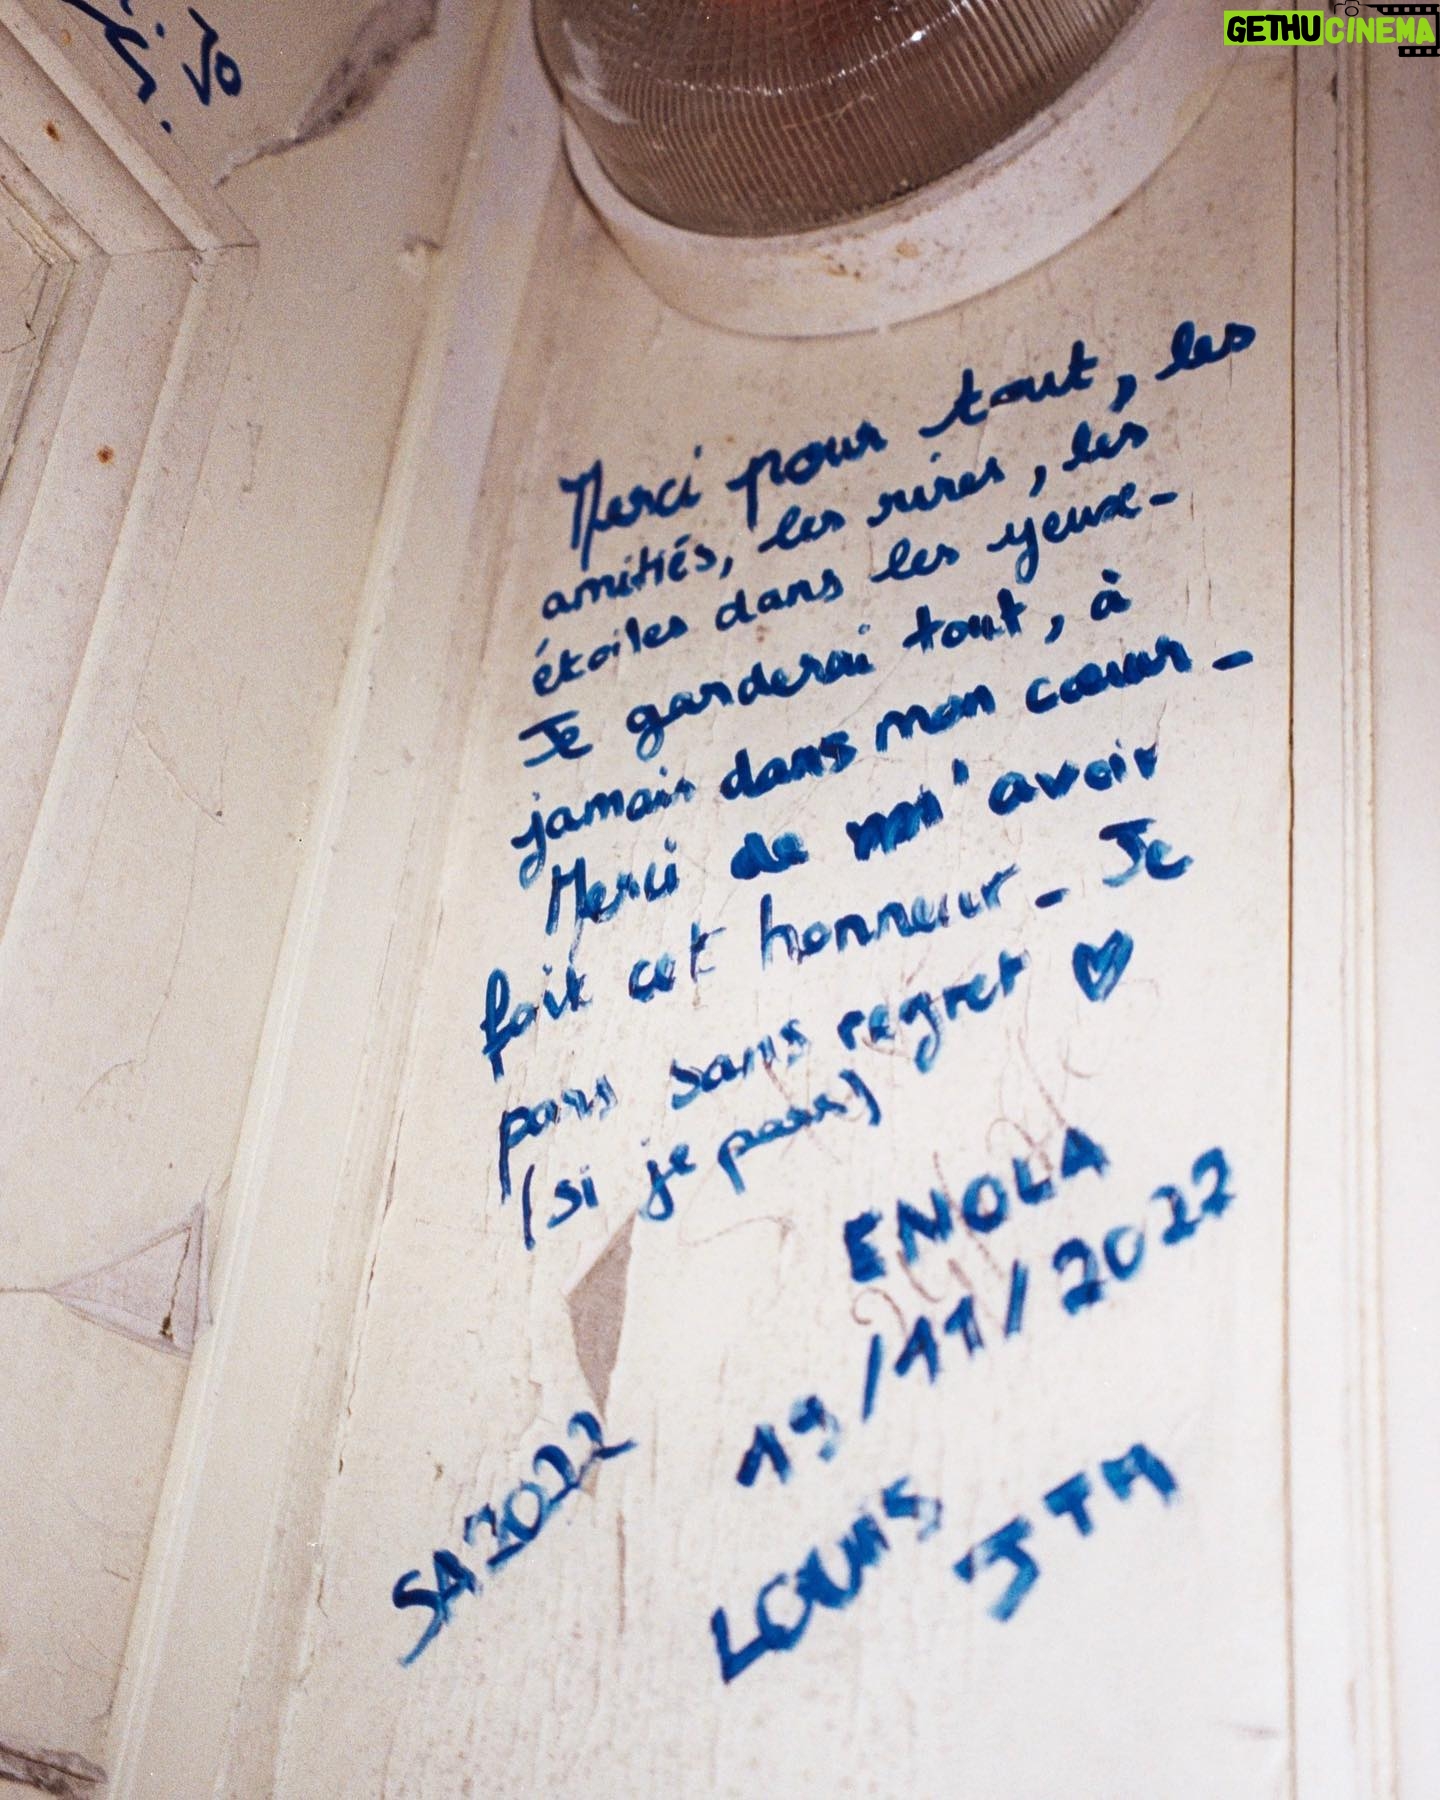 GETHUCINEMA
Merci pour tout, les
amitiés, les rires, les
étoiles dans les yeux-
Je garderai tout, à
jamais dans mon cœur -
Merci de m'avoir
fait cet honneur - Je
pars sans regret ♡
(si je pars)
ENOLA
19/11/2022
SA2022
LOUIS
JTM